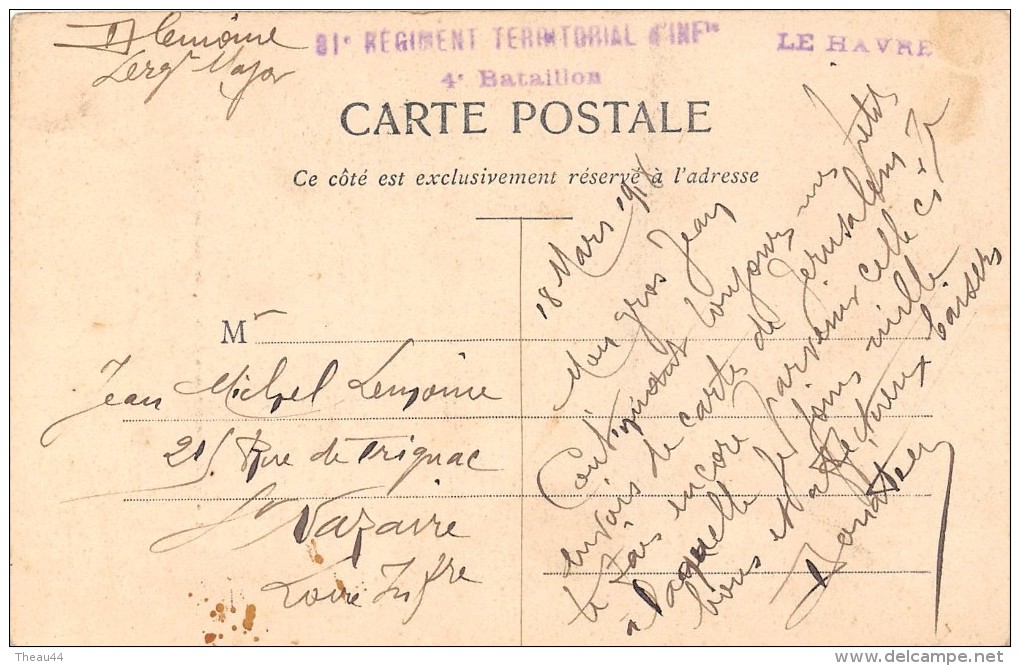 D Lemoine
Sergt Major
81e RÉGIMENT TERRITORIAL D'INFie
4e Bataillon
LE HAVRE
CARTE POSTALE
Ce côté est exclusivement réservé à l'adresse
M
Jean Michel Lemoine
215 Rue de Trignac
St Nazaire
Loire Infre
18 Mars 1916
Mon gros Jean
Continuant toujours mes petits
envois de cartes de Jérusalem je
te fais encore parvenir celle ci
à laquelle je joins mille
bons et affectueux baisers
Theau44
delcampe.net